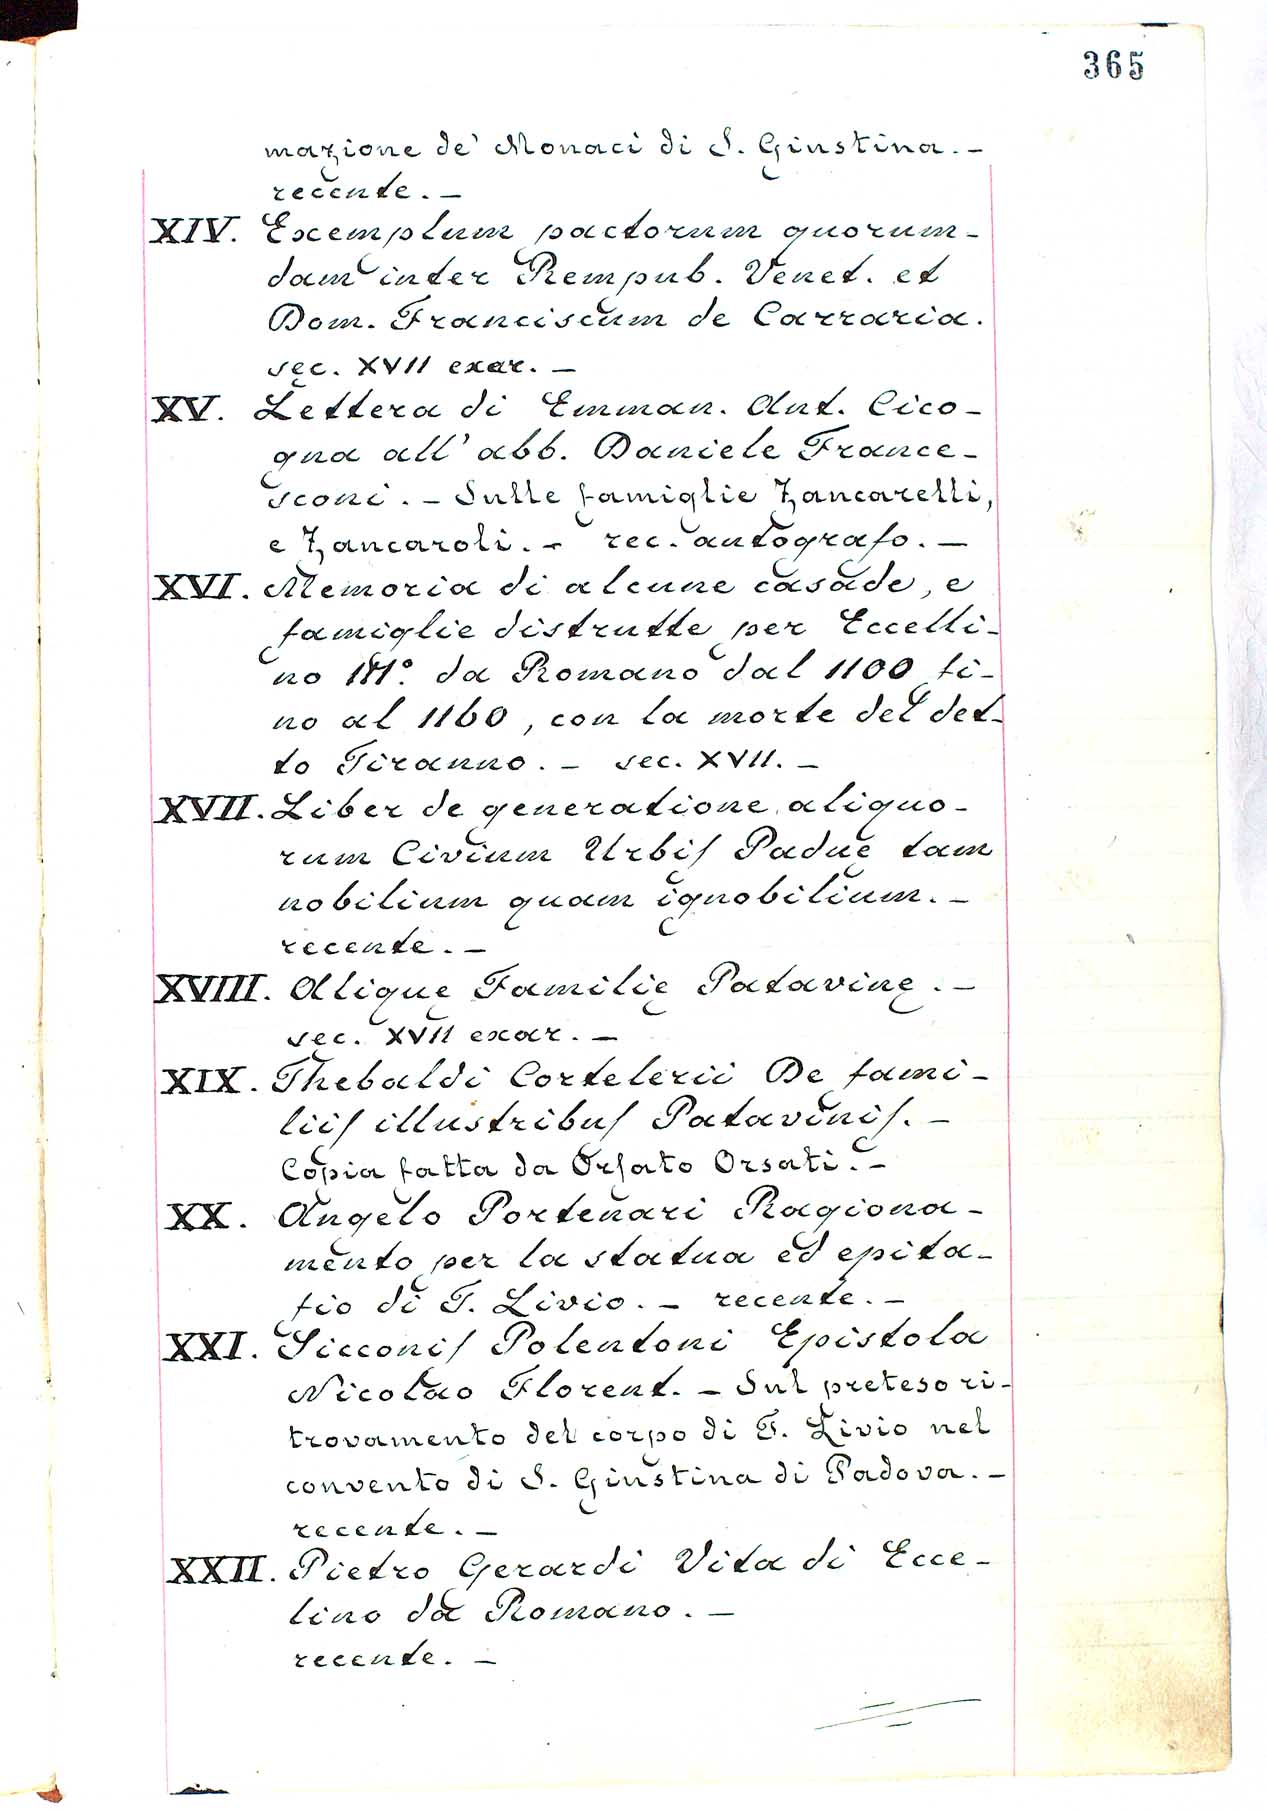 365
mazione de' Monaci di S. Giustina. –
recente. –
XIV. Exemplum pactorum quorum-
dam inter Rempub. Venet. et
Dom. Franciscum de Carraria.
sec. XVII exar. –
XV. Lettera di Emman. Ant. Cico-
gna all' abb. Daniele France-
sconi. – Sulle famiglie Zancarelli,
e Zancaroli. – rec. autografo. –
XVI. Memoria di alcune casade, e
famiglie distrutte per Eccelli-
no III.° da Romano dal 1100 fi-
no al 1160, con la morte del det-
to Tiranno. – sec. XVII. –
XVII. Liber de generatione aliquo-
rum Civium Urbiſ Paduę tam
nobilium quam ignobilium. –
recente. –
XVIII. Aliquę Familię Patavinę. –
sec. XVII exar. –
XIX. Thebaldi Cortelerii De fami-
liiſ illustribuſ Pataviniſ. –
Copia fatta da Orſato Orsati. –
XX. Angelo Portenari Ragiona-
mento per la statua ed epita-
fio di T. Livio. – recente. –
XXI. Sicconiſ Polentoni Epistola
Nicolao Florent. – Sul preteso ri-
trovamento del corpo di T. Livio nel
convento di S. Giustina di Padova. –
recente. –
XXII. Pietro Gerardi Vita di Ecce-
lino da Romano. –
recente. –